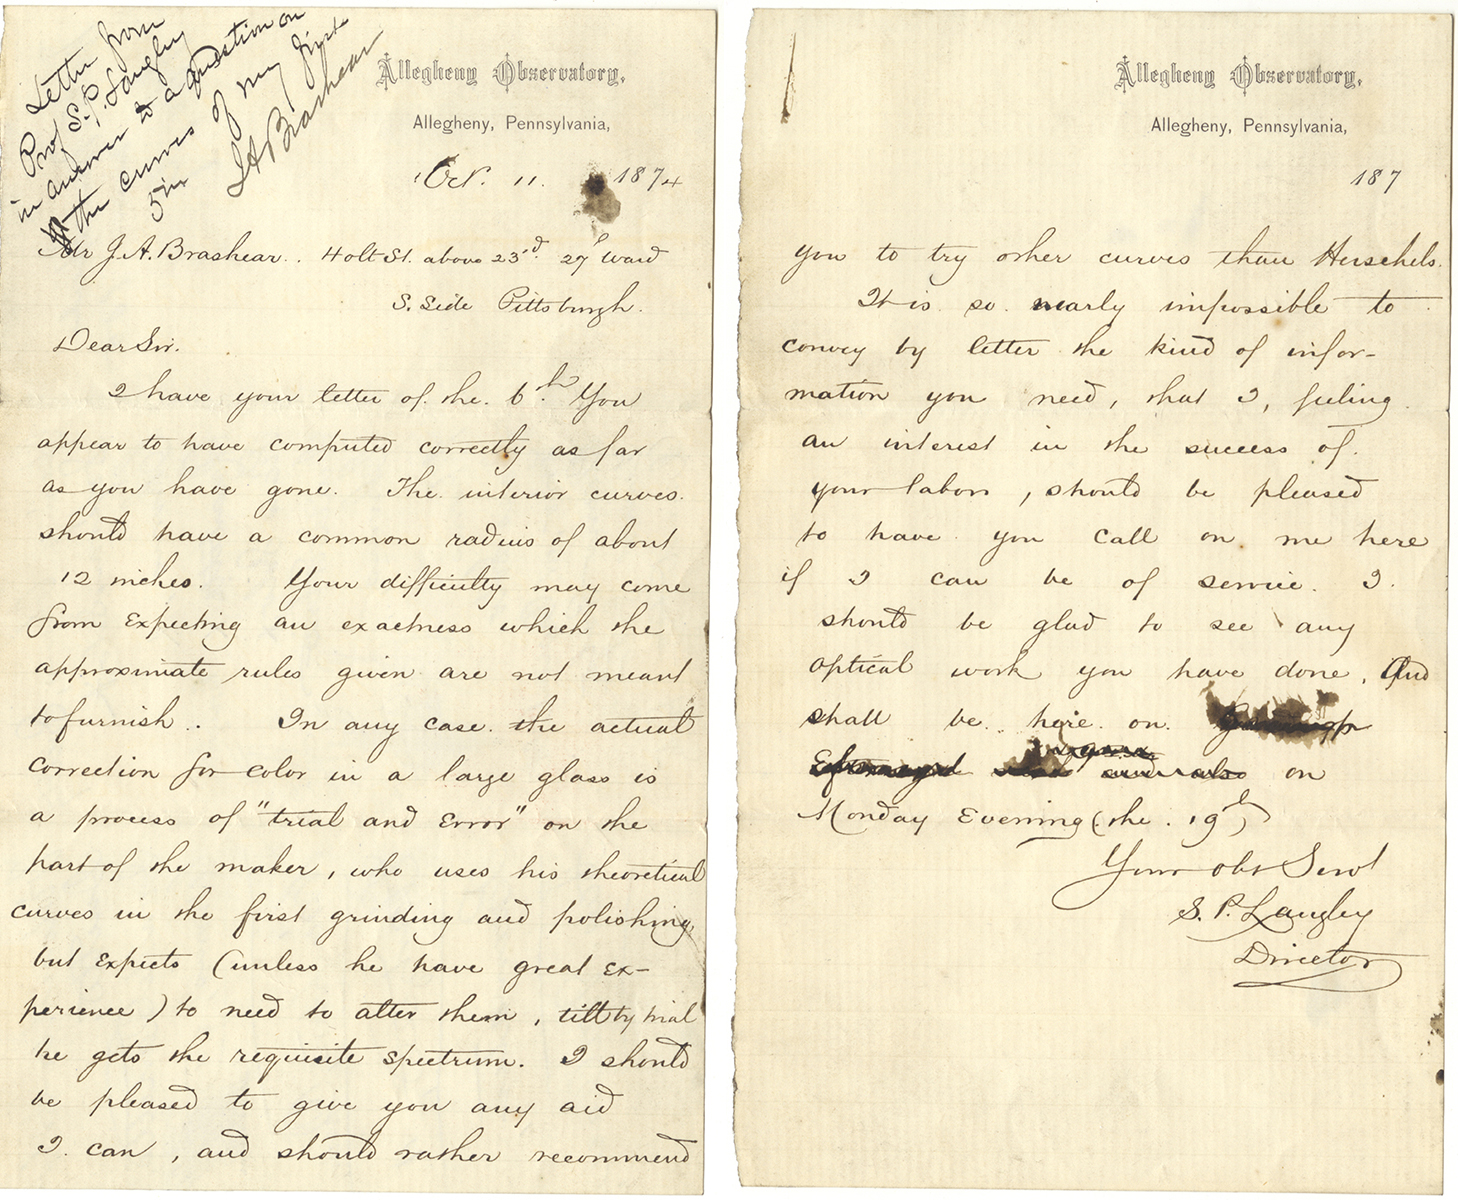 Letter from
Prof S. P. Langley
in answer to a question on
the curves of my first
5 in
J A Brashear
Allegheny Observatory,
Allegheny, Pennsylvania,
Oct. 11. 1874
Mr J. A. Brashear. Holt St. above 23d. 27 ward
S. Side Pittsburgh.
Dear Sir.
I have your letter of the 6th. You
appear to have computed correctly as far
as you have gone. The interior curves
should have a common radius of about
12 inches. Your difficulty may come
from expecting an exactness which the
approximate rules given are not meant
to furnish. In any case the actual
correction for color in a large glass is
a process of "trial and error" on the
part of the maker, who uses his theoretical
curves in the first grinding and polishing
but expects (unless he have great ex-
perience) to need to alter them, till by trial
he gets the requisite spectrum. I should
be pleased to give you any aid
I can, and should rather recommend
Allegheny Observatory,
Allegheny, Pennsylvania,
187
you to try other curves than Herschels.
It is so nearly impossible to
convey by letter the kind of infor-
mation you need, that I, feeling
an interest in the success of
your labors, should be pleased
to have you call on me here
if I can be of service. I
should be glad to see any
optical work you have done, and
shall be here on
on
Monday Evening (the 19th)
Your obt Servt
S. P. Langley
Director